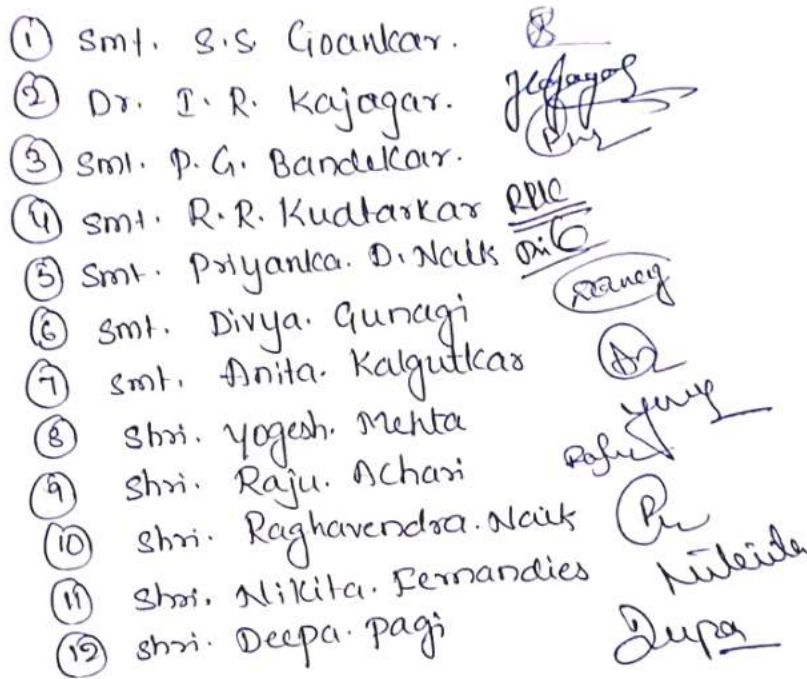 ① Smt. S.S. Goankar.
② Dr. I. R. Kajagar. Kajagar
③ Smt. P. G. Bandekar.
④ Smt. R. R. Kudtarkar RRK
⑤ Smt. Priyanka. D. Naik
⑥ Smt. Divya. Gunagi
⑦ Smt. Anita. Kalgutkar
⑧ Shri. Yogesh. Mehta
⑨ Shri. Raju. Achari Raju
⑩ Shri. Raghavendra. Naik
⑪ Shri. Nikita. Fernandies
⑫ Shri. Deepa. Pagi Deepa